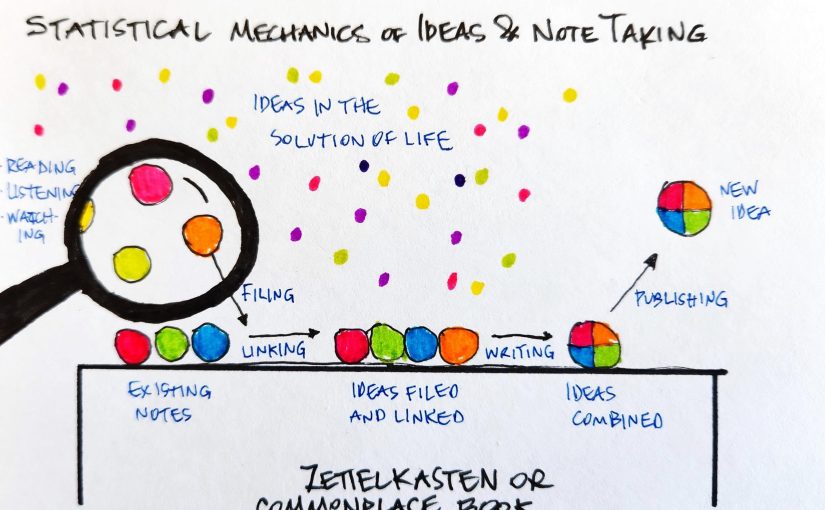 STATISTICAL MECHANICS OF IDEAS & NOTE TAKING
IDEAS IN THE
SOLUTION OF LIFE
- READING
- LISTENING
- WATCH-
ING
NEW
IDEA
FILING
PUBLISHING
LINKING
WRITING
EXISTING
NOTES
IDEAS FILED
AND LINKED
IDEAS
COMBINED
ZETTELKASTEN OR
COMMONPLACE BOOK